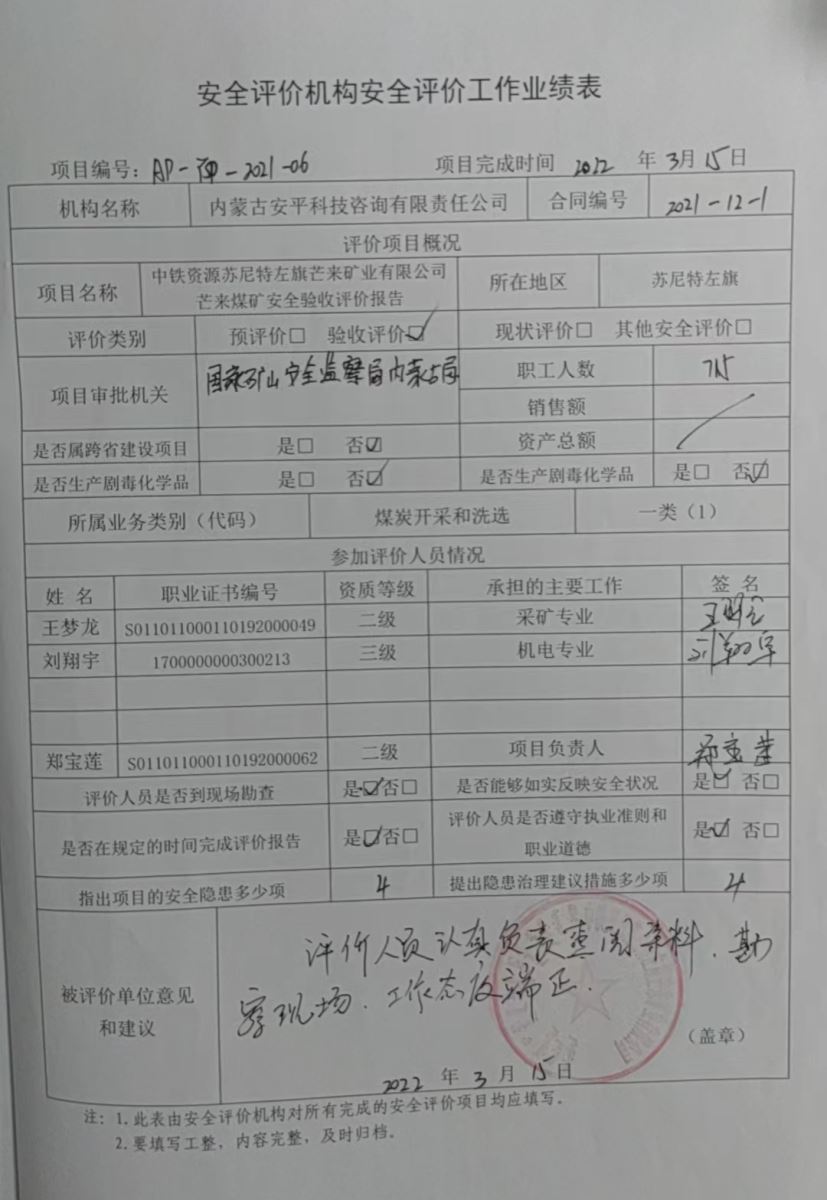 安全评价机构安全评价工作业绩表
项目编号：AP-评-2021-06 项目完成时间 2022 年 3月 15日
机构名称 内蒙古安平科技咨询有限责任公司 合同编号 2021-12-1
评价项目概况
项目名称 中铁资源苏尼特左旗芒来矿业有限公司 所在地区 苏尼特左旗
芒来煤矿安全验收评价报告
评价类别 预评价□ 验收评价☑ 现状评价□ 其他安全评价□
项目审批机关 国家矿山安全监察局内蒙古局 职工人数
销售额
是否属跨省建设项目 是□ 否☑ 资产总额
是否生产剧毒化学品 是□ 否☑ 是否生产剧毒化学品 是□ 否☑
所属业务类别（代码） 煤炭开采和洗选 一类（1）
参加评价人员情况
姓 名 职业证书编号 资质等级 承担的主要工作 签 名
王梦龙 S011011000110192000049 二级 采矿专业
刘翔宇 1700000000300213 三级 机电专业 刘翔宇
郑宝莲 S011011000110192000062 二级 项目负责人 郑宝莲
评价人员是否到现场勘查 是☑否□ 是否能够如实反映安全状况 是☑ 否□
是否在规定的时间完成评价报告 是☑否□ 评价人员是否遵守执业准则和 是☑ 否□
职业道德
指出项目的安全隐患多少项 4 提出隐患治理建议措施多少项 4
被评价单位意见
和建议
评价人员认真负责查阅资料、勘
察现场、工作态度端正.
（盖章）
2022 年 3 月 15日
注：1.此表由安全评价机构对所有完成的安全评价项目均应填写。
2.要填写工整，内容完整，及时归档。